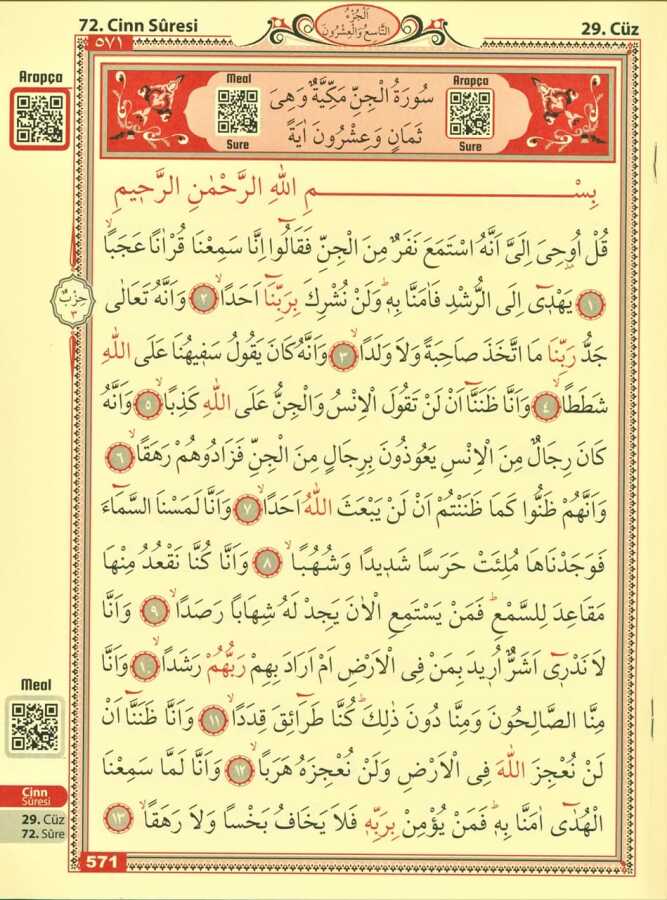 72. Cinn Sûresi
اَلْجُزْءُ
التَّاسِعُ وَالْعِشْرُونَ
29. Cüz
٥٧١
Arapça
Meal
Sure
سُورَةُ الْجِنِّ مَكِّيَّةٌ وَهِىَ
ثَمَانٍ وَعِشْرُونَ اٰيَةً
Arapça
Sure
بِسْمِ اللهِ الرَّحْمٰنِ الرَّحٖيمِ
قُلْ اُوحِىَ اِلَىَّ اَنَّهُ اسْتَمَعَ نَفَرٌ مِنَ الْجِنِّ فَقَالُٓوا اِنَّا سَمِعْنَا قُرْاٰنًا عَجَبًاۙ
﴿١﴾ يَهْدٖٓى اِلَى الرُّشْدِ فَاٰمَنَّا بِهٖؕ وَلَنْ نُشْرِكَ بِرَبِّنَٓا اَحَدًاۙ ﴿٢﴾ وَاَنَّهُ تَعَالٰى
حِزْبٌ
٣
جَدُّ رَبِّنَا مَا اتَّخَذَ صَاحِبَةً وَلَا وَلَدًاۙ ﴿٣﴾ وَاَنَّهُ كَانَ يَقُولُ سَفٖيهُنَا عَلَى اللهِ
شَطَطًاۙ ﴿٤﴾ وَاَنَّا ظَنَنَّٓا اَنْ لَنْ تَقُولَ الْاِنْسُ وَالْجِنُّ عَلَى اللهِ كَذِبًاۙ ﴿٥﴾ وَاَنَّهُ
كَانَ رِجَالٌ مِنَ الْاِنْسِ يَعُوذُونَ بِرِجَالٍ مِنَ الْجِنِّ فَزَادُوهُمْ رَهَقًاۙ ﴿٦﴾
وَاَنَّهُمْ ظَنُّوا كَمَا ظَنَنْتُمْ اَنْ لَنْ يَبْعَثَ اللهُ اَحَدًاۙ ﴿٧﴾ وَاَنَّا لَمَسْنَا السَّمَٓاءَ
فَوَجَدْنَاهَا مُلِئَتْ حَرَسًا شَدٖيدًا وَشُهُبًاۙ ﴿٨﴾ وَاَنَّا كُنَّا نَقْعُدُ مِنْهَا
مَقَاعِدَ لِلسَّمْعِؕ فَمَنْ يَسْتَمِعِ الْاٰنَ يَجِدْ لَهُ شِهَابًا رَصَدًاۙ ﴿٩﴾ وَاَنَّا
لَا نَدْرٖٓى اَشَرٌّ اُرٖيدَ بِمَنْ فِى الْاَرْضِ اَمْ اَرَادَ بِهِمْ رَبُّهُمْ رَشَدًاۙ ﴿١٠﴾ وَاَنَّا
Meal
مِنَّا الصَّالِحُونَ وَمِنَّا دُونَ ذٰلِكَؕ كُنَّا طَرَٓائِقَ قِدَدًاۙ ﴿١١﴾ وَاَنَّا ظَنَنَّٓا اَنْ
لَنْ نُعْجِزَ اللهَ فِى الْاَرْضِ وَلَنْ نُعْجِزَهُ هَرَبًاۙ ﴿١٢﴾ وَاَنَّا لَمَّا سَمِعْنَا
الْهُدٰٓى اٰمَنَّا بِهٖؕ فَمَنْ يُؤْمِنْ بِرَبِّهٖ فَلَا يَخَافُ بَخْسًا وَلَا رَهَقًاۙ ﴿١٣﴾
Cinn
Sûresi
29. Cüz
72. Sûre
571